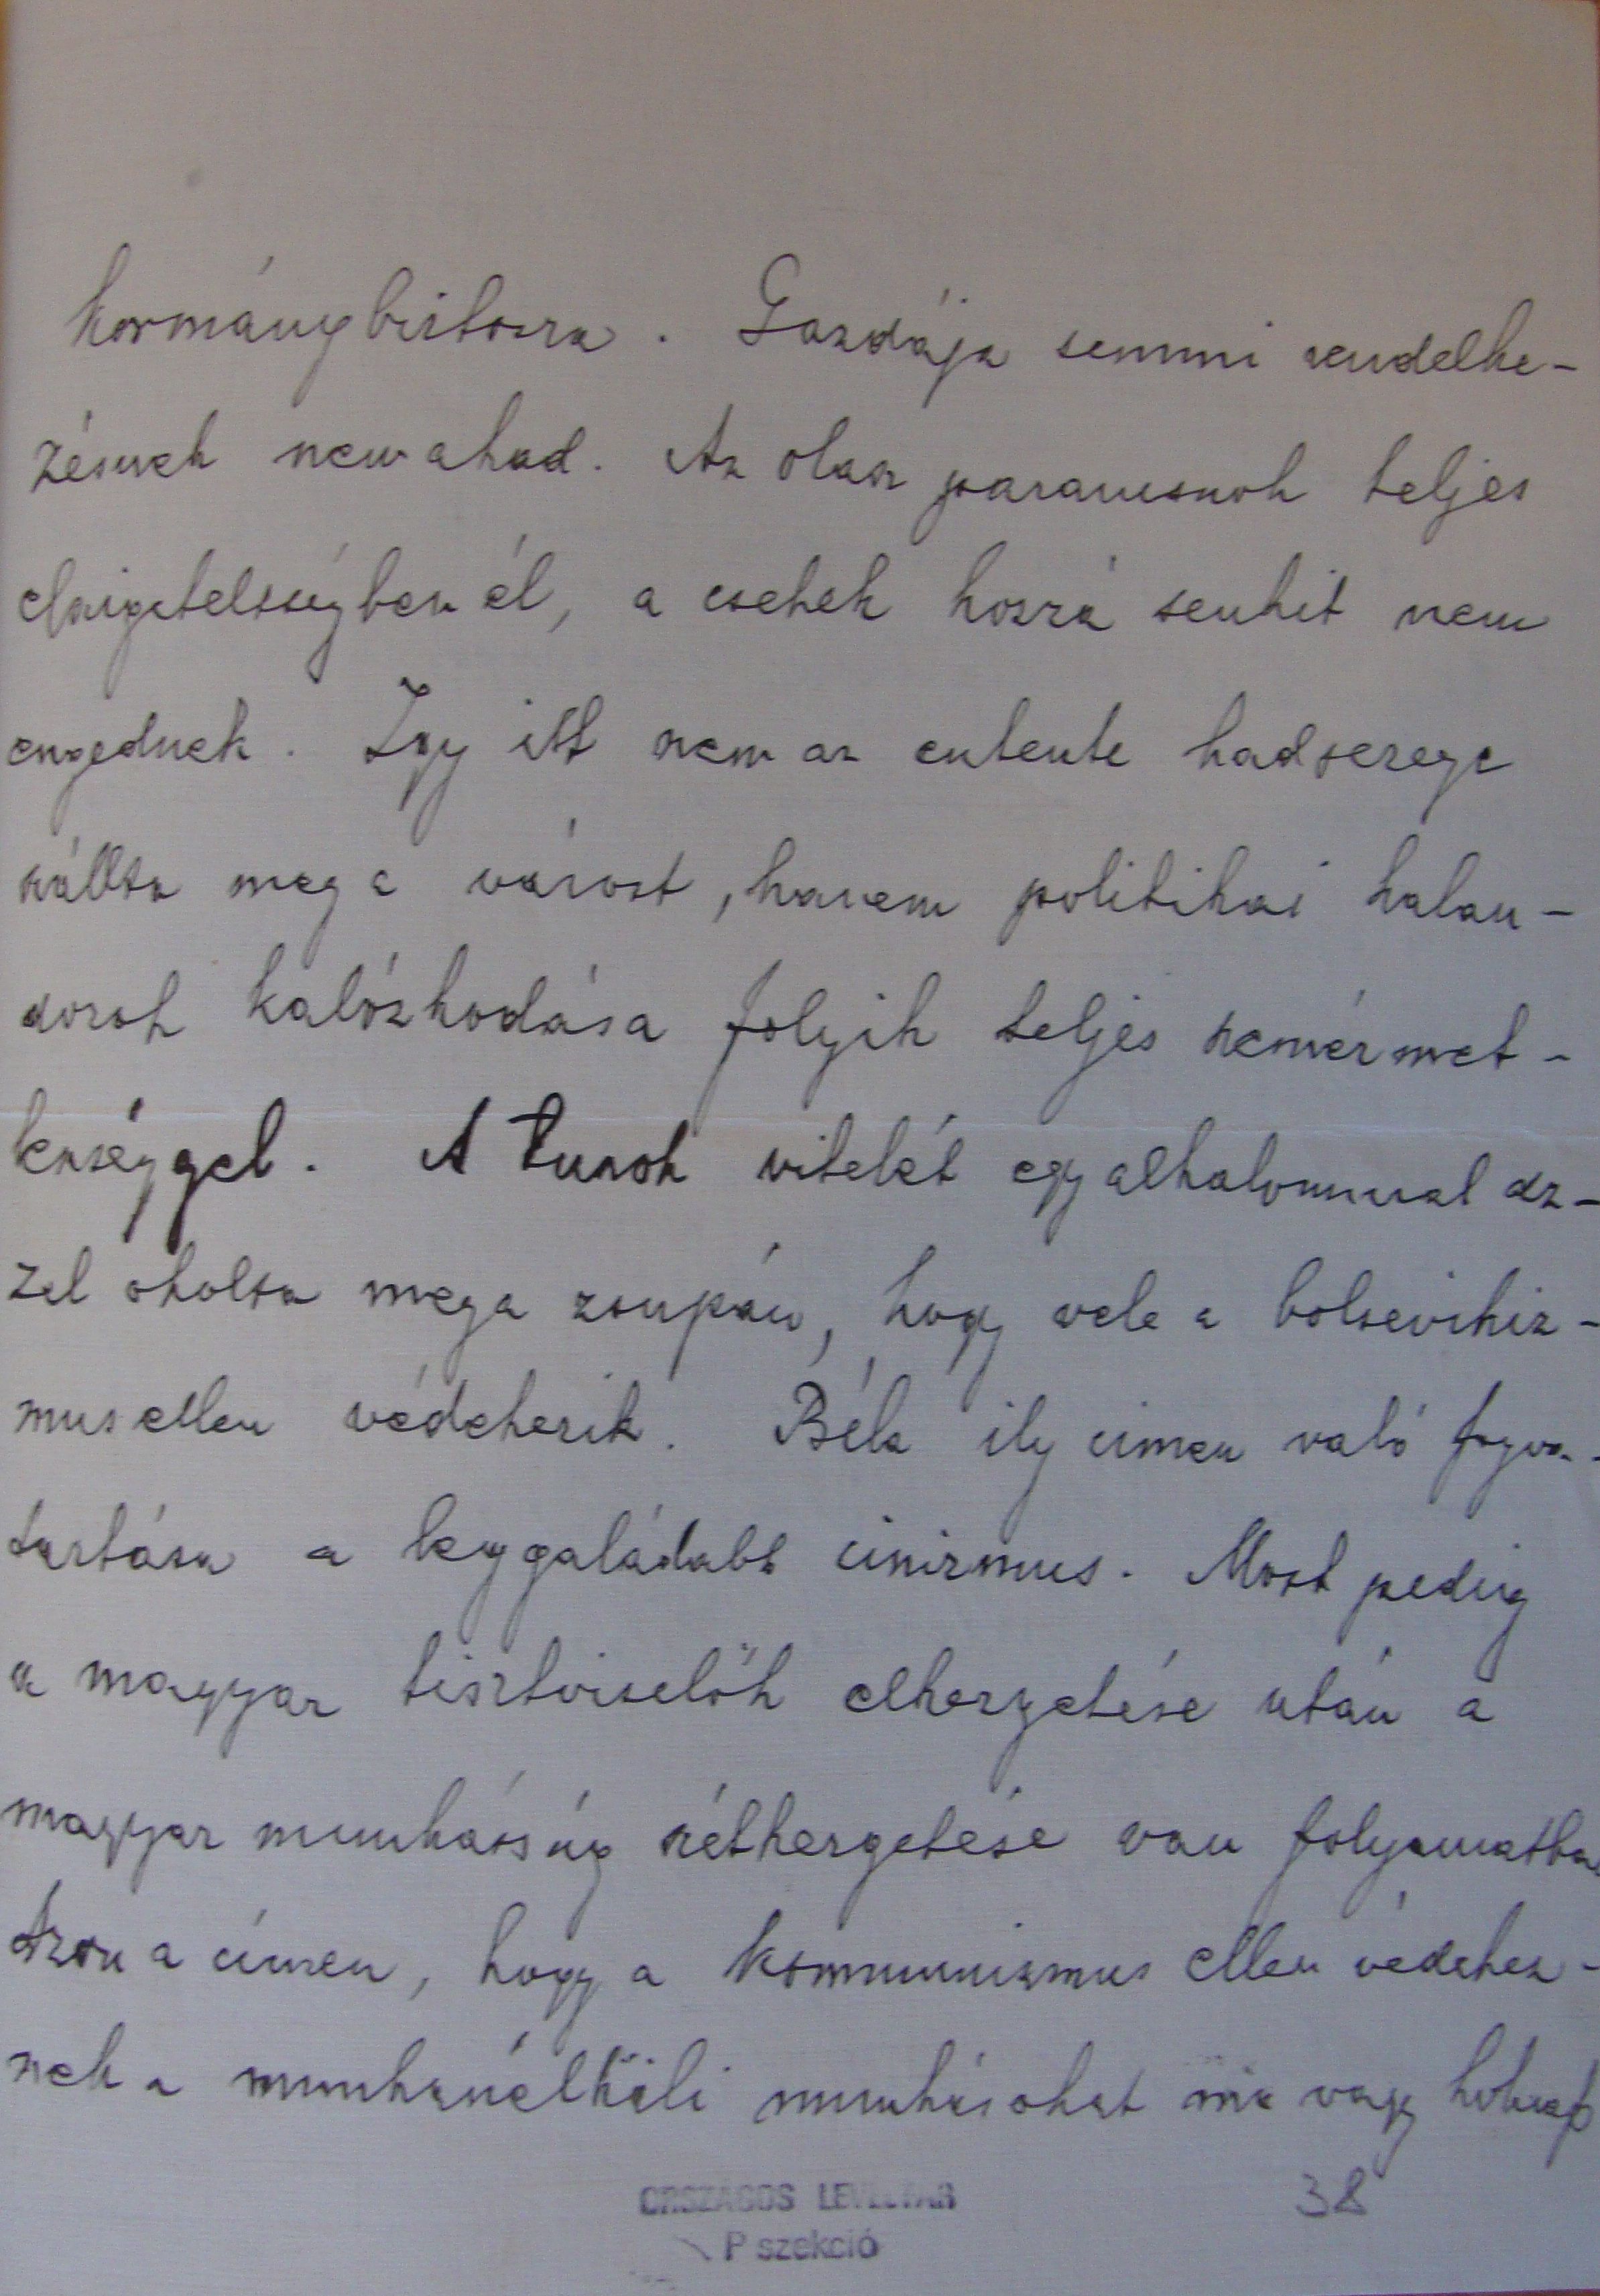 kormánybiztosra. Gazdája semmi rendelke-
zésnek nem akad. Az olasz parancsnok teljes
elszigeteltségben él, a csehek hozzá senkit nem
engednek. Igy itt nem az entente hadserege
szállta meg a várost, hanem politikai kalan-
dorok kalózkodása folyik teljes szemérmet-
lenséggel. A tuszok vitelét egy alkalommal az-
zal okolta meg a zsupán, hogy vele a bolsevikiz-
mus ellen védekezik. Béla ily cimen való fogva-
tartása a leggaládabb cinizmus. Most pedig
a magyar tisztviselők elkergetése után a
magyar munkásság szétkergetése van folyamatban
Azon a címen, hogy a kommunizmus ellen védekez-
nek a munkanélküli munkásokat ma vagy holnap
ORSZÁGOS LEVÉLTÁR
38
P szekció